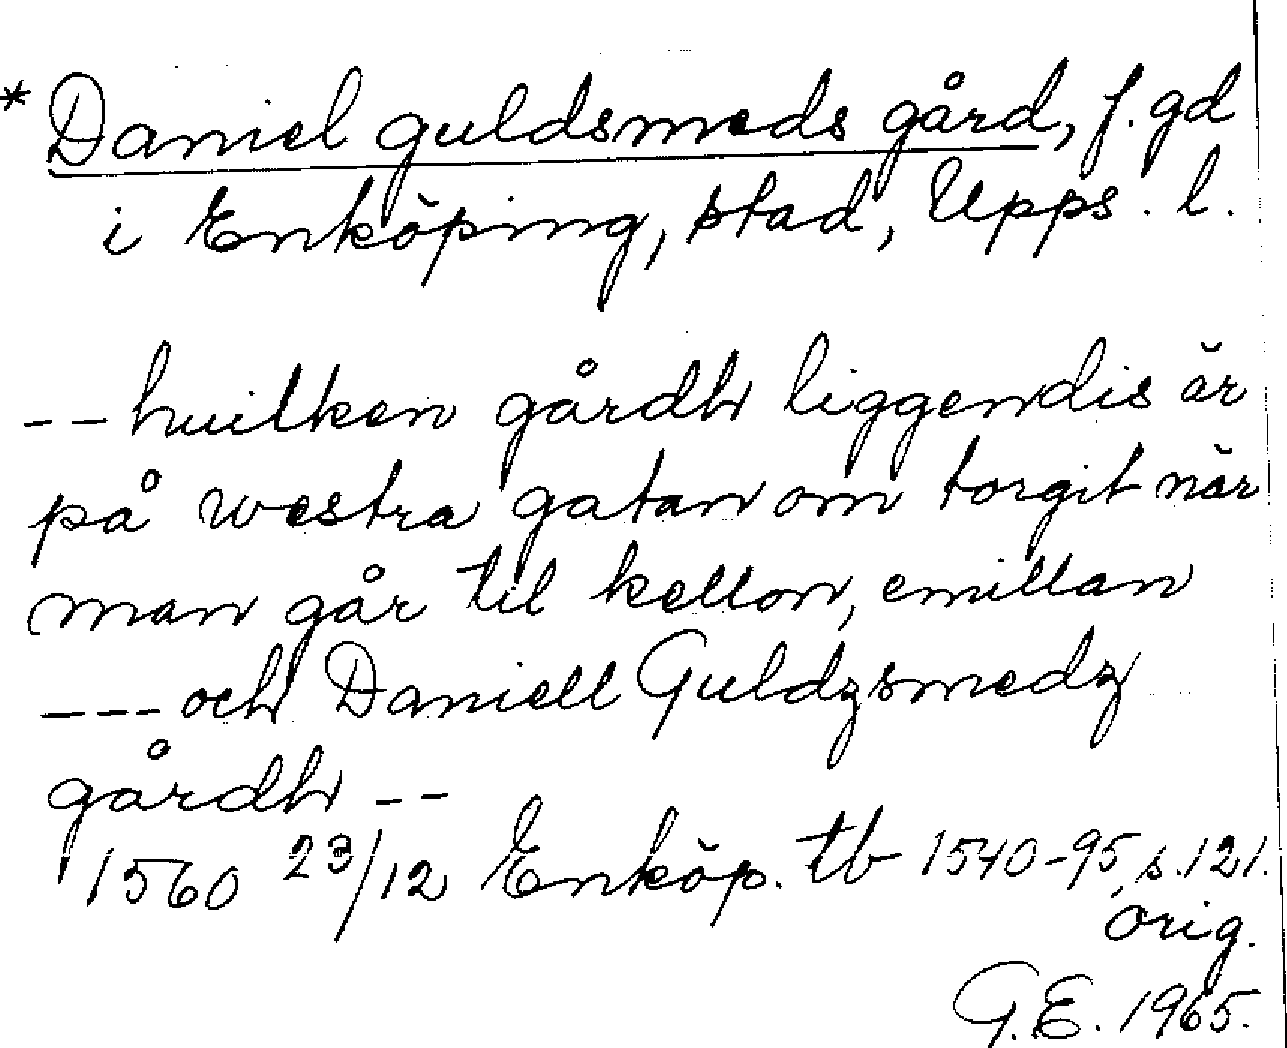 * Daniel guldsmeds gård, f. gd
i Enköping, stad, Upps. l.
-- huilken gårdh liggendis är
på westra gatan om torgit när
man går til kellon, emillan
--- och Daniell Guldzsmedz
gårdh --
1560 23/12 Enköp. tb 1540-95, s. 121.
orig.
G.E. 1965.